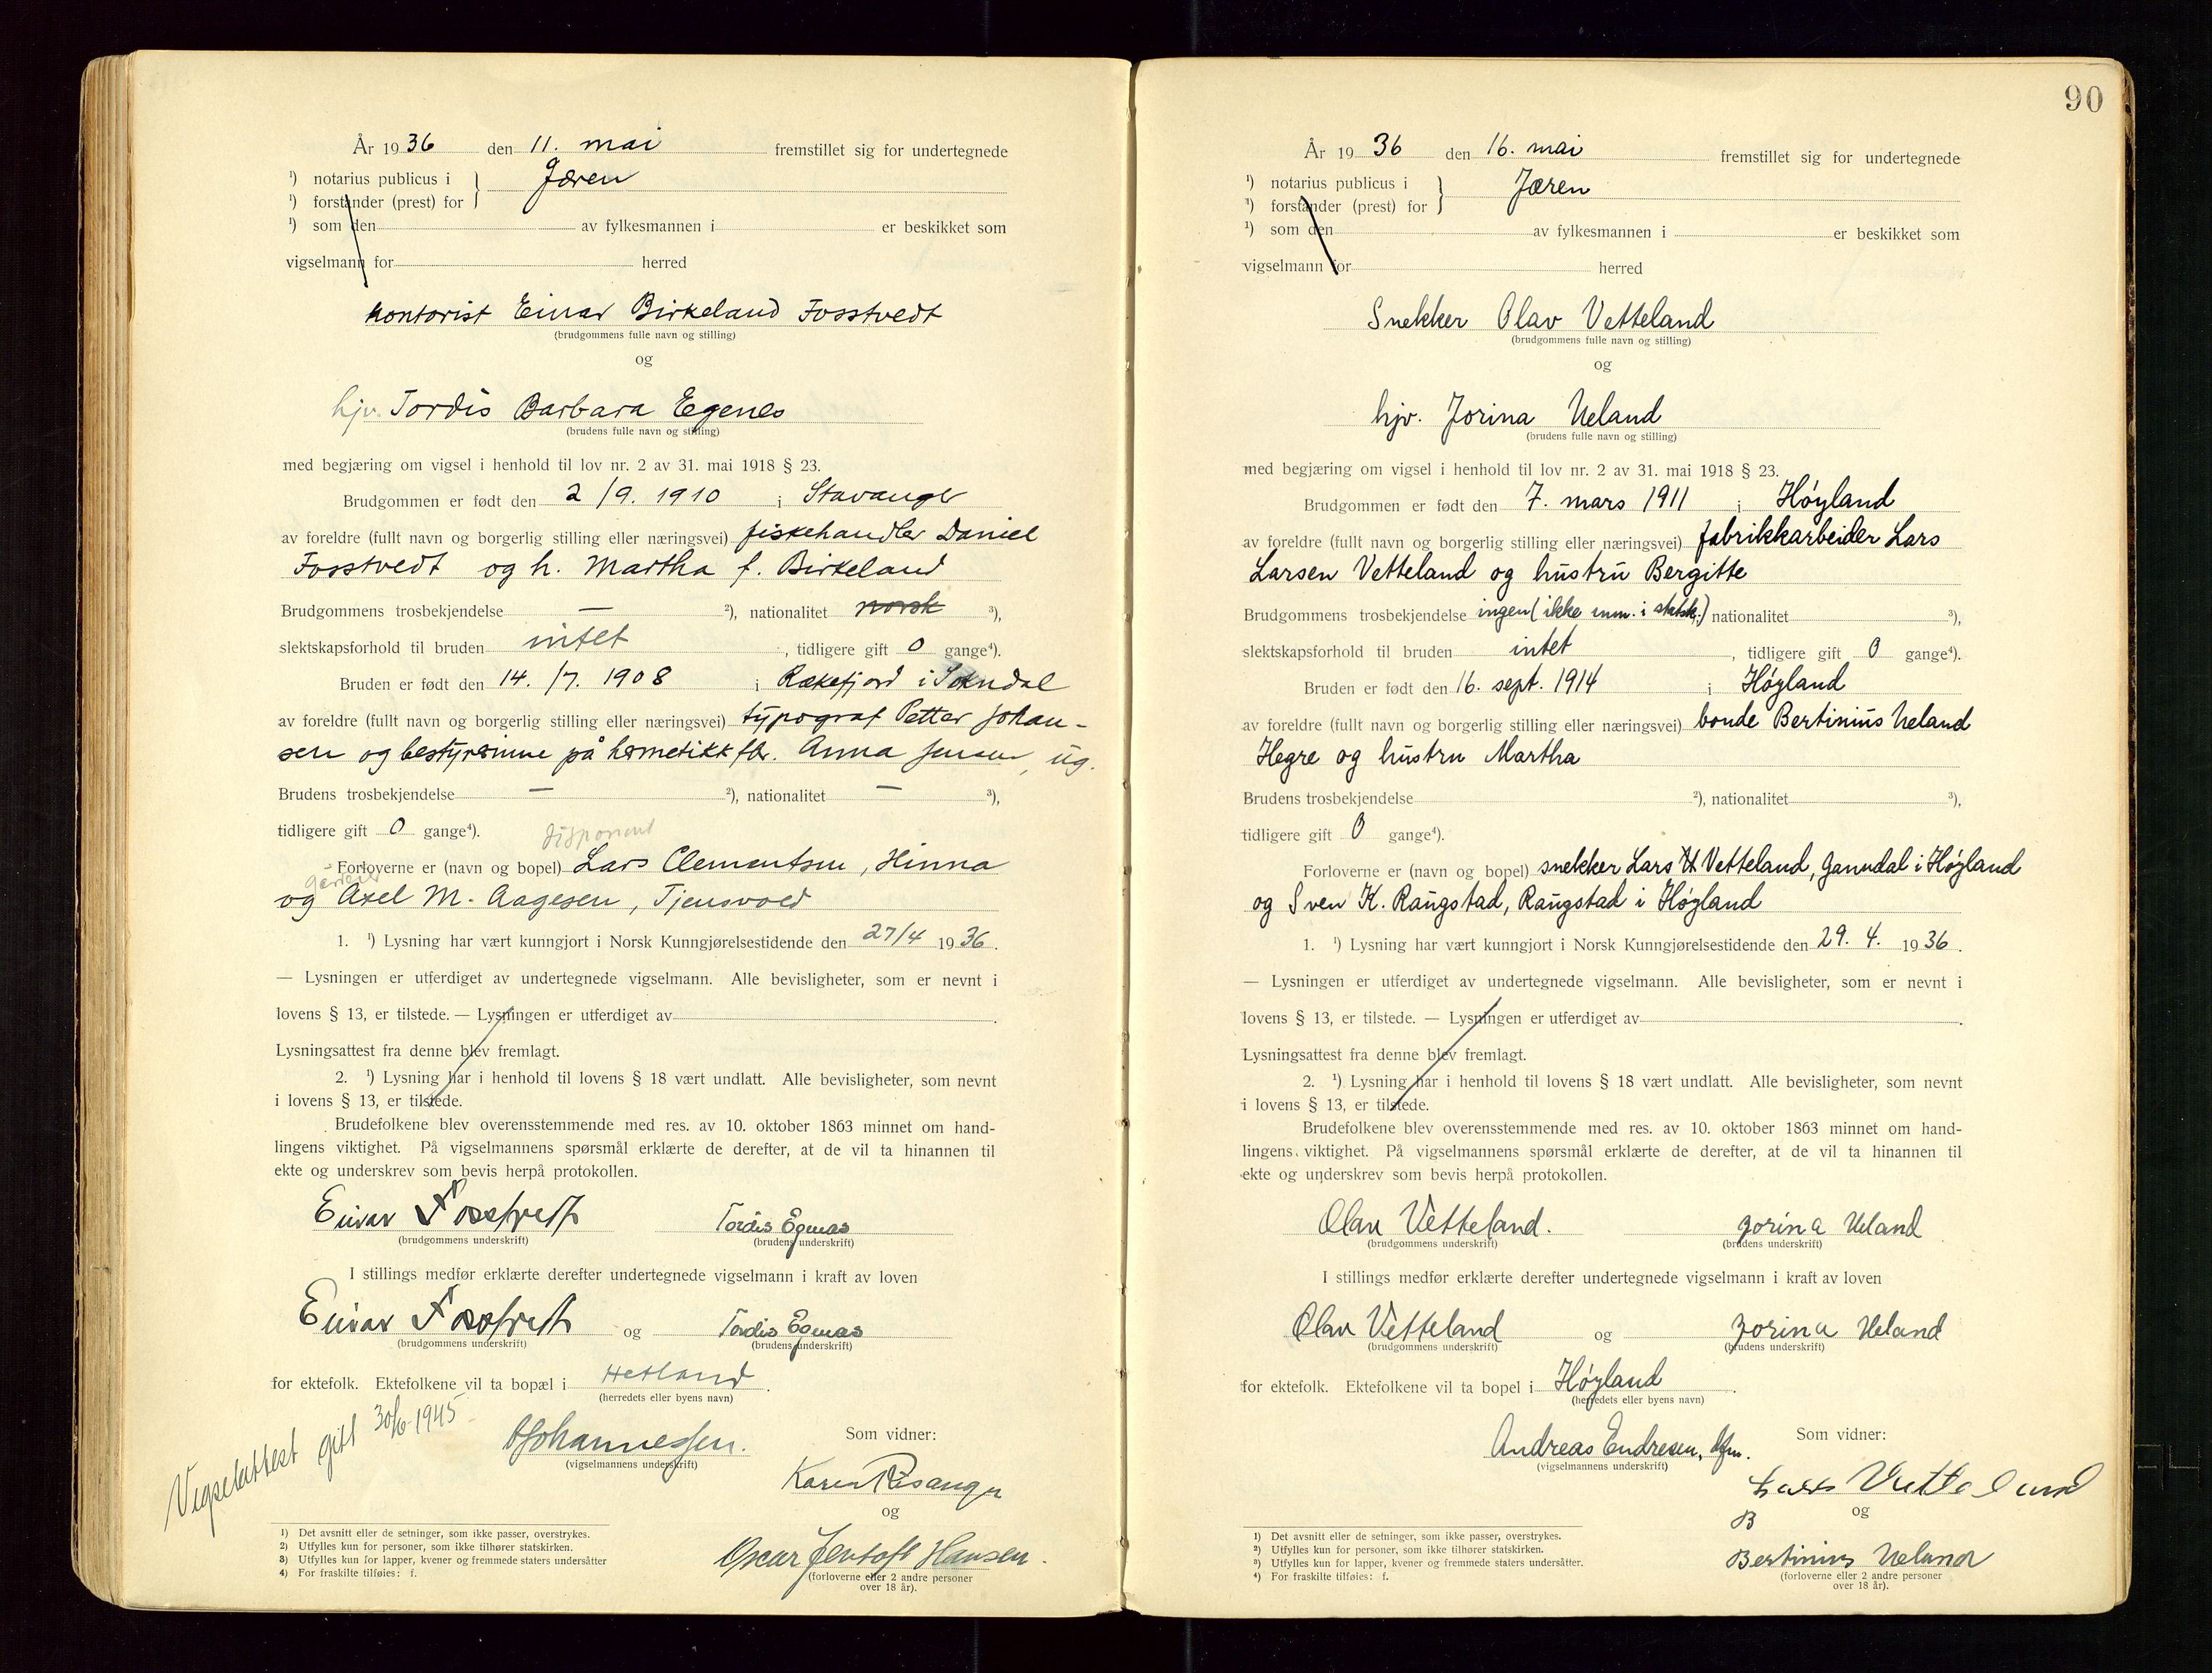 År 1936 den 11. mai fremstillet sig for undertegnede
¹) notarius publicus i
¹) forstander (prest) for } Jæren
¹) som den av fylkesmannen i er beskikket som
vigselmann for herred
kontorist Einar Birkeland Fosstvedt
(brudgommens fulle navn og stilling)
og
hjv. Tordis Barbara Egenes
(brudens fulle navn og stilling)
med begjæring om vigsel i henhold til lov nr. 2 av 31. mai 1918 § 23.
Brudgommen er født den 2/9. 1910 i Stavanger
av foreldre (fullt navn og borgerlig stilling eller næringsvei) fiskehandler Daniel
Fosstvedt og h. Martha f. Birkeland
Brudgommens trosbekjendelse — ²), nationalitet norsk ³),
slektskapsforhold til bruden intet, tidligere gift 0 gange⁴).
Bruden er født den 14./7. 1908 i Rækefjord i Sokndal
av foreldre (fullt navn og borgerlig stilling eller næringsvei) typograf Petter Johan-
sen og bestyrerinne på hermetikkfbr. Anna Jensen, ug.
Brudens trosbekjendelse — ²), nationalitet — ³),
tidligere gift 0 gange⁴).
disponent
Forloverne er (navn og bopel) Lars Clementsen, Hinna
gartner
og Axel M. Aagesen, Tjensvold
1. ¹) Lysning har vært kunngjort i Norsk Kunngjørelsestidende den 27/4 1936.
— Lysningen er utferdiget av undertegnede vigselmann. Alle bevisligheter, som er nevnt i
lovens § 13, er tilstede. — Lysningen er utferdiget av
Lysningsattest fra denne blev fremlagt.
2. ¹) Lysning har i henhold til lovens § 18 vært undlatt. Alle bevisligheter, som nevnt
i lovens § 13, er tilstede.
Brudefolkene blev overensstemmende med res. av 10. oktober 1863 minnet om hand-
lingens viktighet. På vigselmannens spørsmål erklærte de derefter, at de vil ta hinannen til
ekte og underskrev som bevis herpå protokollen.
Einar Fosstvedt Tordis Egenes
(brudgommens underskrift) (brudens underskrift)
I stillings medfør erklærte derefter undertegnede vigselmann i kraft av loven
Einar Fosstvedt og Tordis Egenes
(brudgommens underskrift) (brudens underskrift)
for ektefolk. Ektefolkene vil ta bopæl i Hetland.
(herredets eller byens navn)
Vigselattest gitt 30/6-1945
Johannessen.
(vigselmannens underskrift)
Som vidner:
Karen Risanger
og
Oscar Jentoft Hansen.
(forloverne eller 2 andre personer
over 18 år).
1) Det avsnitt eller de setninger, som ikke passer, overstrykes.
2) Utfylles kun for personer, som ikke tilhører statskirken.
3) Utfylles kun for lapper, kvener og fremmede staters undersåtter
4) For fraskilte tilføies: f.
90
År 1936 den 16. mai fremstillet sig for undertegnede
¹) notarius publicus i
¹) forstander (prest) for } Jæren
¹) som den av fylkesmannen i er beskikket som
vigselmann for herred
Snekker Olav Vetteland
(brudgommens fulle navn og stilling)
og
hjv. Jorina Ueland
(brudens fulle navn og stilling)
med begjæring om vigsel i henhold til lov nr. 2 av 31. mai 1918 § 23.
Brudgommen er født den 7. mars 1911 i Høyland
av foreldre (fullt navn og borgerlig stilling eller næringsvei) fabrikkarbeider Lars
Larsen Vetteland og hustru Bergitte
Brudgommens trosbekjendelse ingen (ikke inm. i statsk.) nationalitet ³),
slektskapsforhold til bruden intet, tidligere gift 0 gange⁴).
Bruden er født den 16. sept. 1914 i Høyland
av foreldre (fullt navn og borgerlig stilling eller næringsvei) bonde Bertinius Ueland
Hegre og hustru Martha
Brudens trosbekjendelse ²), nationalitet ³),
tidligere gift 0 gange⁴).
Forloverne er (navn og bopel) snekker Lars Vetteland, Ganndal i Høyland
og Sven K. Raugstad, Raugstad i Høyland
1. ¹) Lysning har vært kunngjort i Norsk Kunngjørelsestidende den 29. 4. 1936.
— Lysningen er utferdiget av undertegnede vigselmann. Alle bevisligheter, som er nevnt i
lovens § 13, er tilstede. — Lysningen er utferdiget av
Lysningsattest fra denne blev fremlagt.
2. ¹) Lysning har i henhold til lovens § 18 vært undlatt. Alle bevisligheter, som nevnt
i lovens § 13, er tilstede.
Brudefolkene blev overensstemmende med res. av 10. oktober 1863 minnet om hand-
lingens viktighet. På vigselmannens spørsmål erklærte de derefter, at de vil ta hinannen til
ekte og underskrev som bevis herpå protokollen.
Olav Vetteland. Jorina Ueland
(brudgommens underskrift) (brudens underskrift)
I stillings medfør erklærte derefter undertegnede vigselmann i kraft av loven
Olav Vetteland og Jorina Ueland
(brudgommens underskrift) (brudens underskrift)
for ektefolk. Ektefolkene vil ta bopel i Høyland.
(herredets eller byens navn)
Andreas Endresen, dfm.
(vigselmannens underskrift)
Som vidner:
Lars Vetteland
og
B
Bertinius Ueland
(forloverne eller 2 andre personer
over 18 år).
1) Det avsnitt eller de setninger, som ikke passer, overstrykes.
2) Utfylles kun for personer, som ikke tilhører statskirken.
3) Utfylles kun for lapper, kvener og fremmede staters undersåtter.
4) For fraskilte tilføies: f.